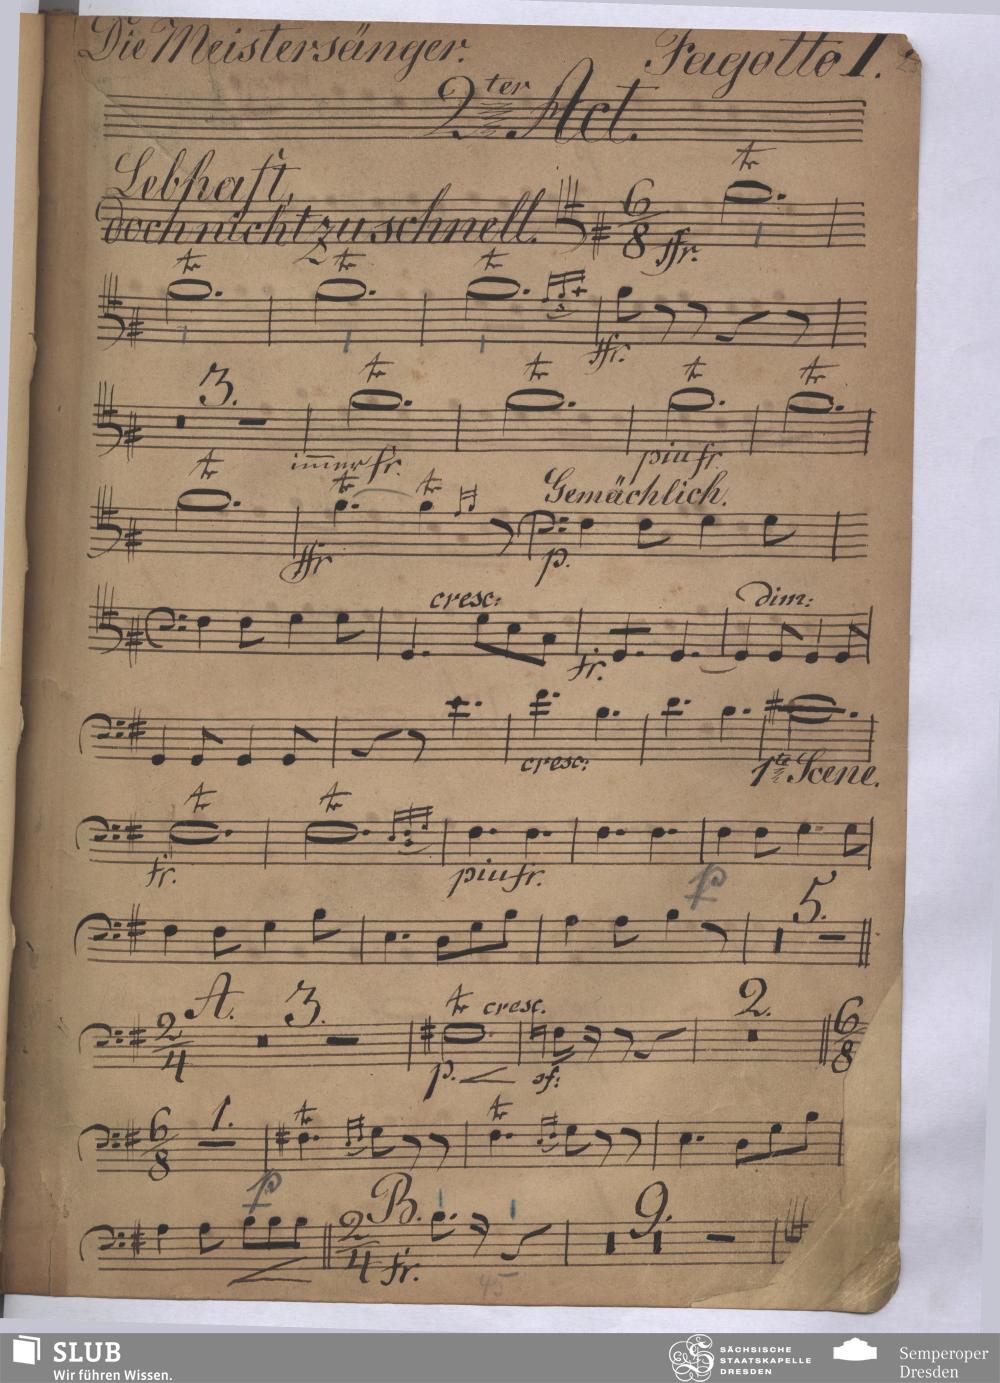 Die Meistersänger. Fagotto I.
2ter Act.
tr
Lebhaft,
doch nicht zu schnell. 6/8 ffr.
tr tr tr
3
ffr.
3. tr tr tr tr
immer fr. piu fr.
tr tr tr Gemächlich.
ffr p.
cresc: dim:
fr.
cresc: 1te Scene.
tr tr
fr. piu fr.
p
5.
A. 3. tr cresc. 2.
2/4 6/8
p. sf:
1. tr tr
6/8
p B. 9.
2/4 fr.
45
SLUB
Wir führen Wissen.
SÄCHSISCHE
STAATSKAPELLE
DRESDEN
Semperoper
Dresden